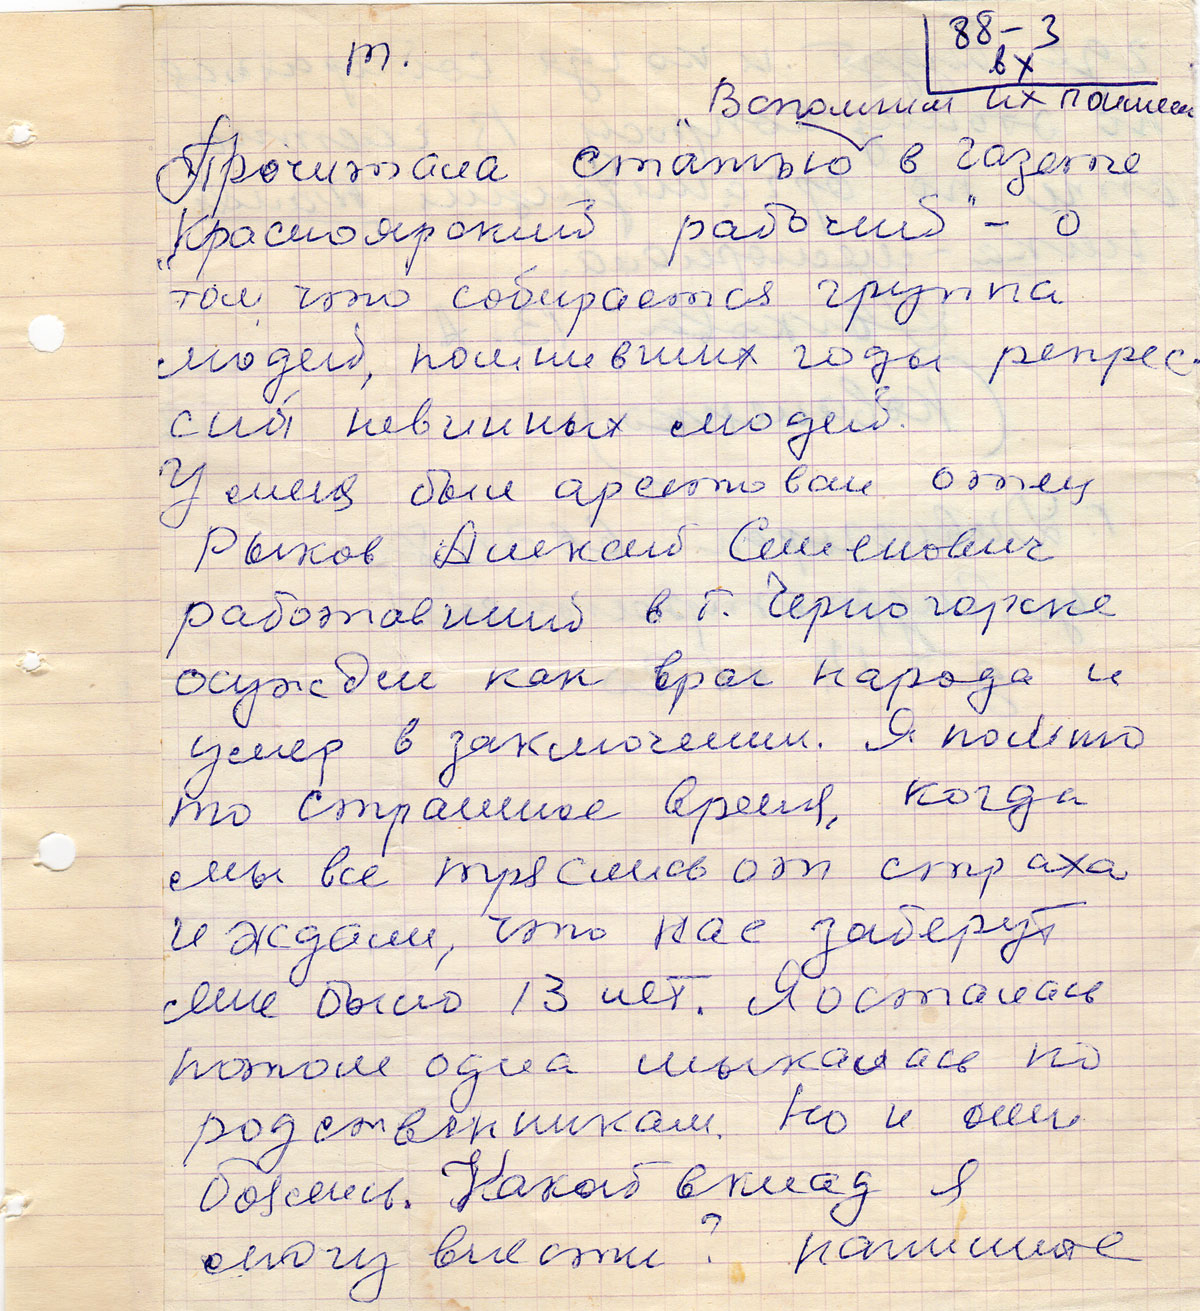 т.
88-3
вх
"Вспомним их поимен
Прочитала статью в газете
"Красноярский рабочий" - о
том, что собирается группа
людей, помнивших годы репрес-
сий невинных людей.
У меня был арестован отец
Рыков Алексей Семенович
работавший в г. Черногорске
осужден как враг народа и
умер в заключении. Я помню
то страшное время, когда
мы все тряслись от страха
и ждали, что нас заберут
мне было 13 лет. Я осталась
потом одна мыкалась по
родственникам. Но и они
боялись. Какой вклад я
могу внести? напишите